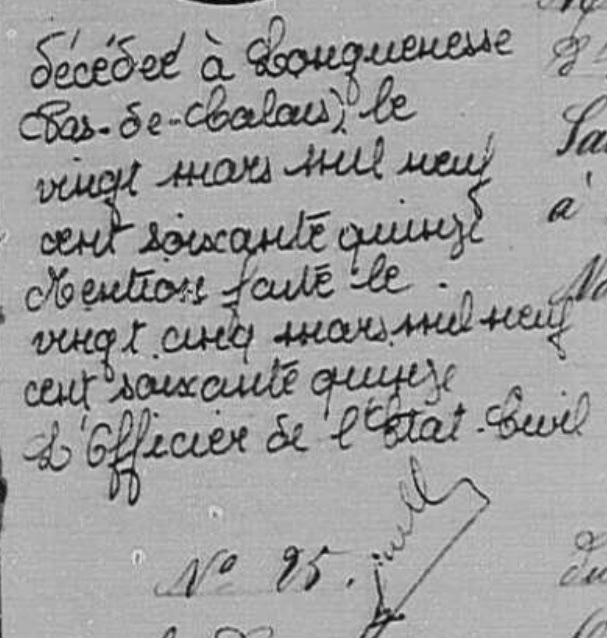 décédée à Longuenesse
(Pas-de-Calais) le
vingt mars mil neuf
cent soixante quinze
Mention faite le
vingt cinq mars mil neuf
cent soixante quinze
L'Officier de l'Etat-Civil
N° 25.